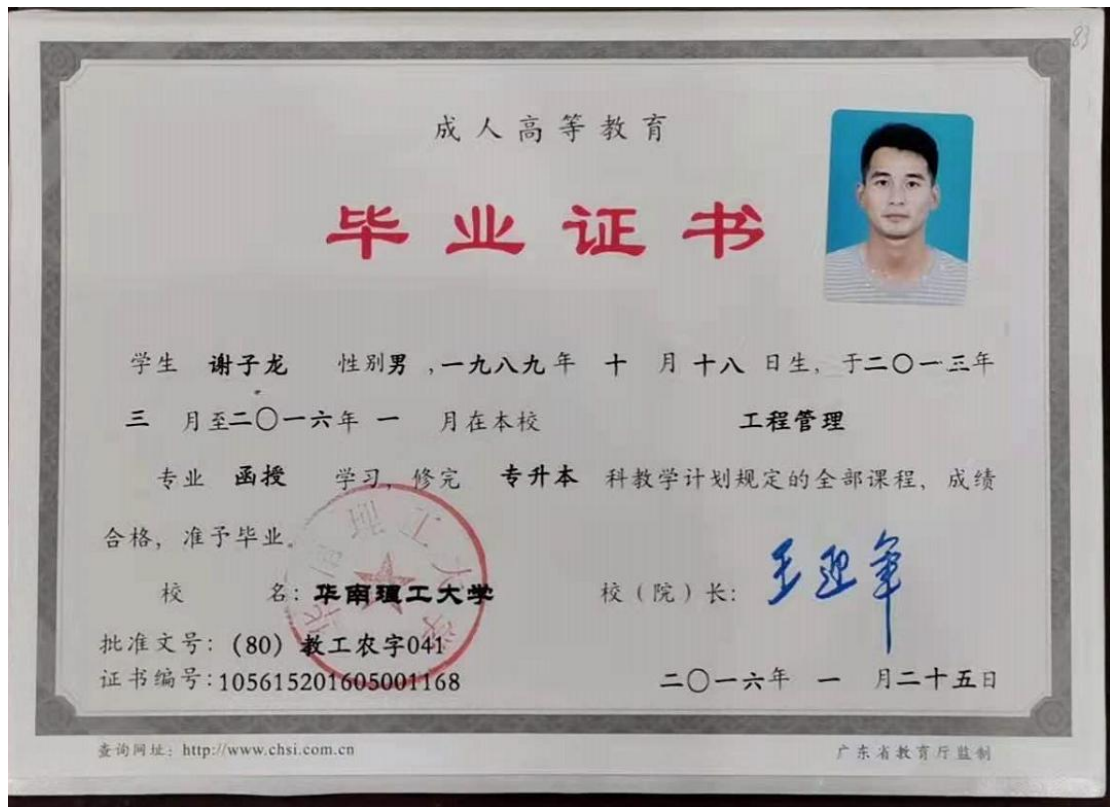 83
成人高等教育
毕业证书
学生 谢子龙 性别男，一九八九年 十 月 十八 日生，于二〇一三年
三 月至二〇一六年 一 月在本校 工程管理
专业 函授 学习，修完 专升本 科教学计划规定的全部课程、成绩
合格，准予毕业。
华南理工大学
校 名：华南理工大学 校（院）长：王迎军
批准文号：(80) 教工农字041
证书编号：105615201605001168 二〇一六年 一 月二十五日
查询网址：http://www.chsi.com.cn 广东省教育厅监制